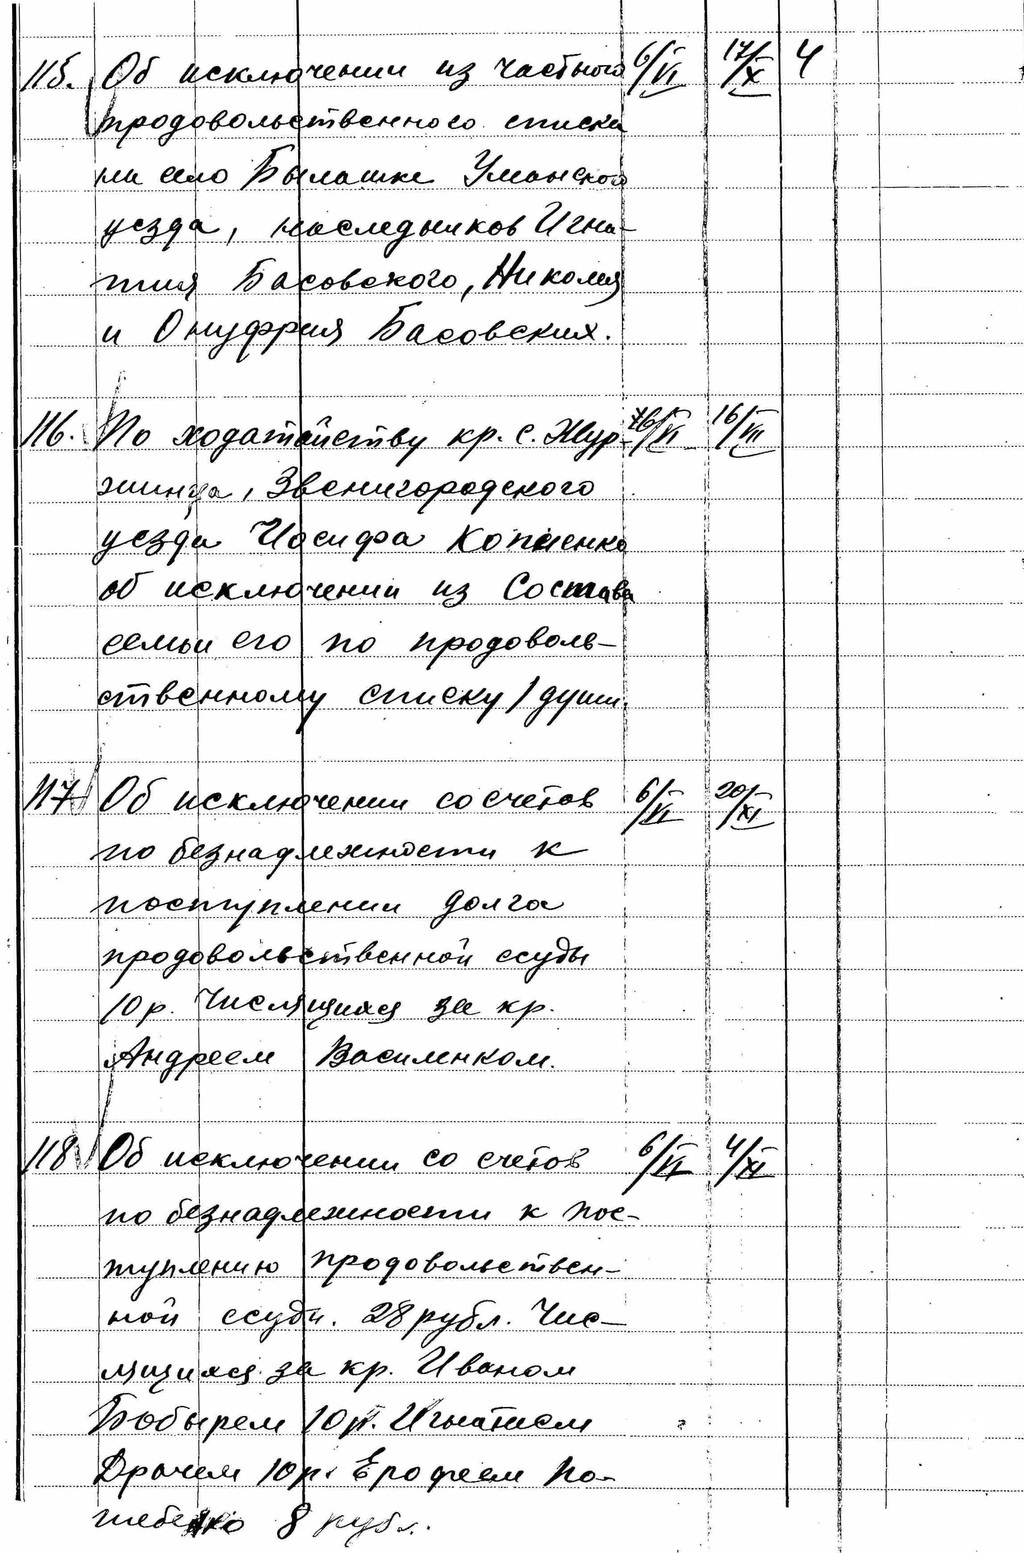 115. Об исключении из частного 6/VI 17/X 4
продовольственного списка
на село Былашки Уманского
уезда, наследников Игна-
тия Басовского, Николая
и Онуфрия Басовских.
116. По ходатайству кр. с. Жур- 6/VI 16/VIII
жинца, Звенигородского
уезда Иосифа Копиенко
об исключении из Состава
семьи его по продоволь-
ственному списку 1 души.
117. Об исключении со счетов 6/VI 20/XI
по безнадлежности к
поступлении долга
продовольственной ссуды
10 р. Числящихся за кр.
Андреем Василенком.
118. Об исключении со счетов 6/VI 4/XI
по безнадлежности к пос-
туплению продовольствен-
ной ссуды. 28 рубл. Чис-
лящихся за кр. Иваном
Бобырем 10 р. Игнатием
Драчем 10 р. Ерофеем По-
гребенко 8 рубл.